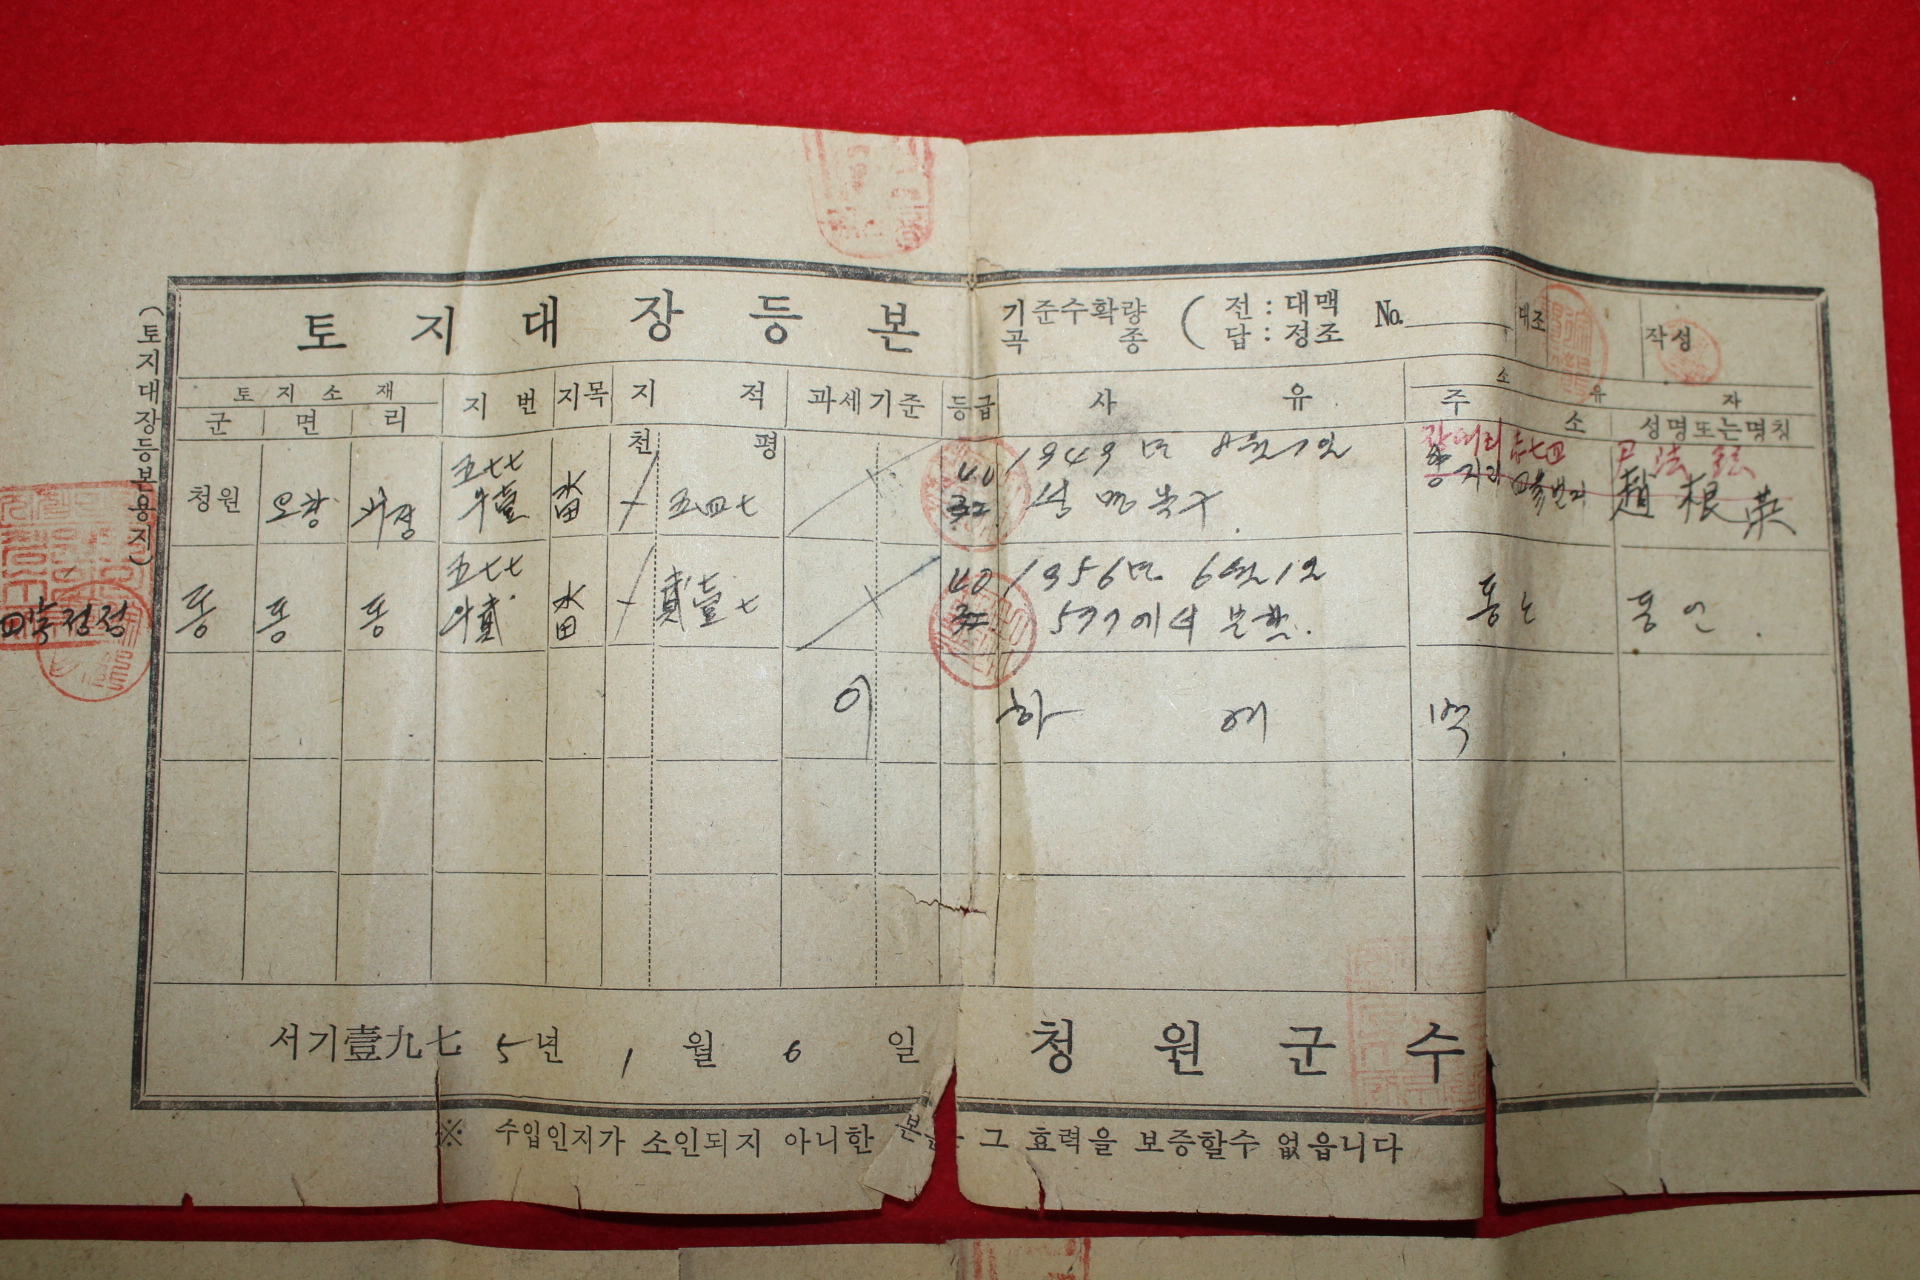 토지대장등본
기준수확량 곡종 ( 전 : 대맥 답 : 정조
No.
대조
작성
(토지대장등본용지)
토지소재 지번 지목 지적 과세기준 등급 사유 소유자
군 면 리 주소 성명또는명칭
천 평
청원 오창 五七七 畓 五四七 40 1949년 8월1일
趙根英
五七七 畓 貳壹七 40 1956년 6월1일
동 동 동 577에서 분할. 동 동인.
이하여백
서기壹九七5년 1월 6일 청원군수
※ 수입인지가 소인되지 아니한 그 효력을 보증할수 없읍니다